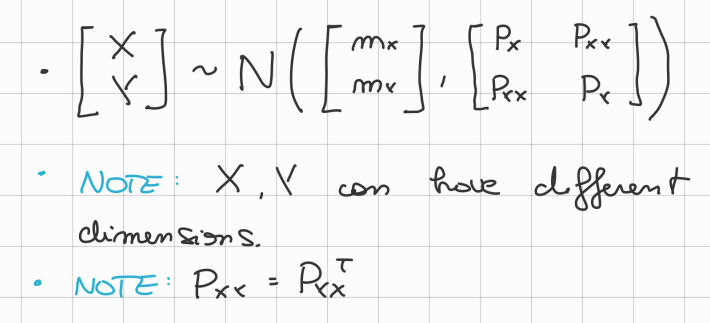 • [X Y] ~ N([mx my], [Px Pxy Pyx Py])
• NOTE: X, Y can have different
dimensions.
• NOTE: Pxy = Pyx^T